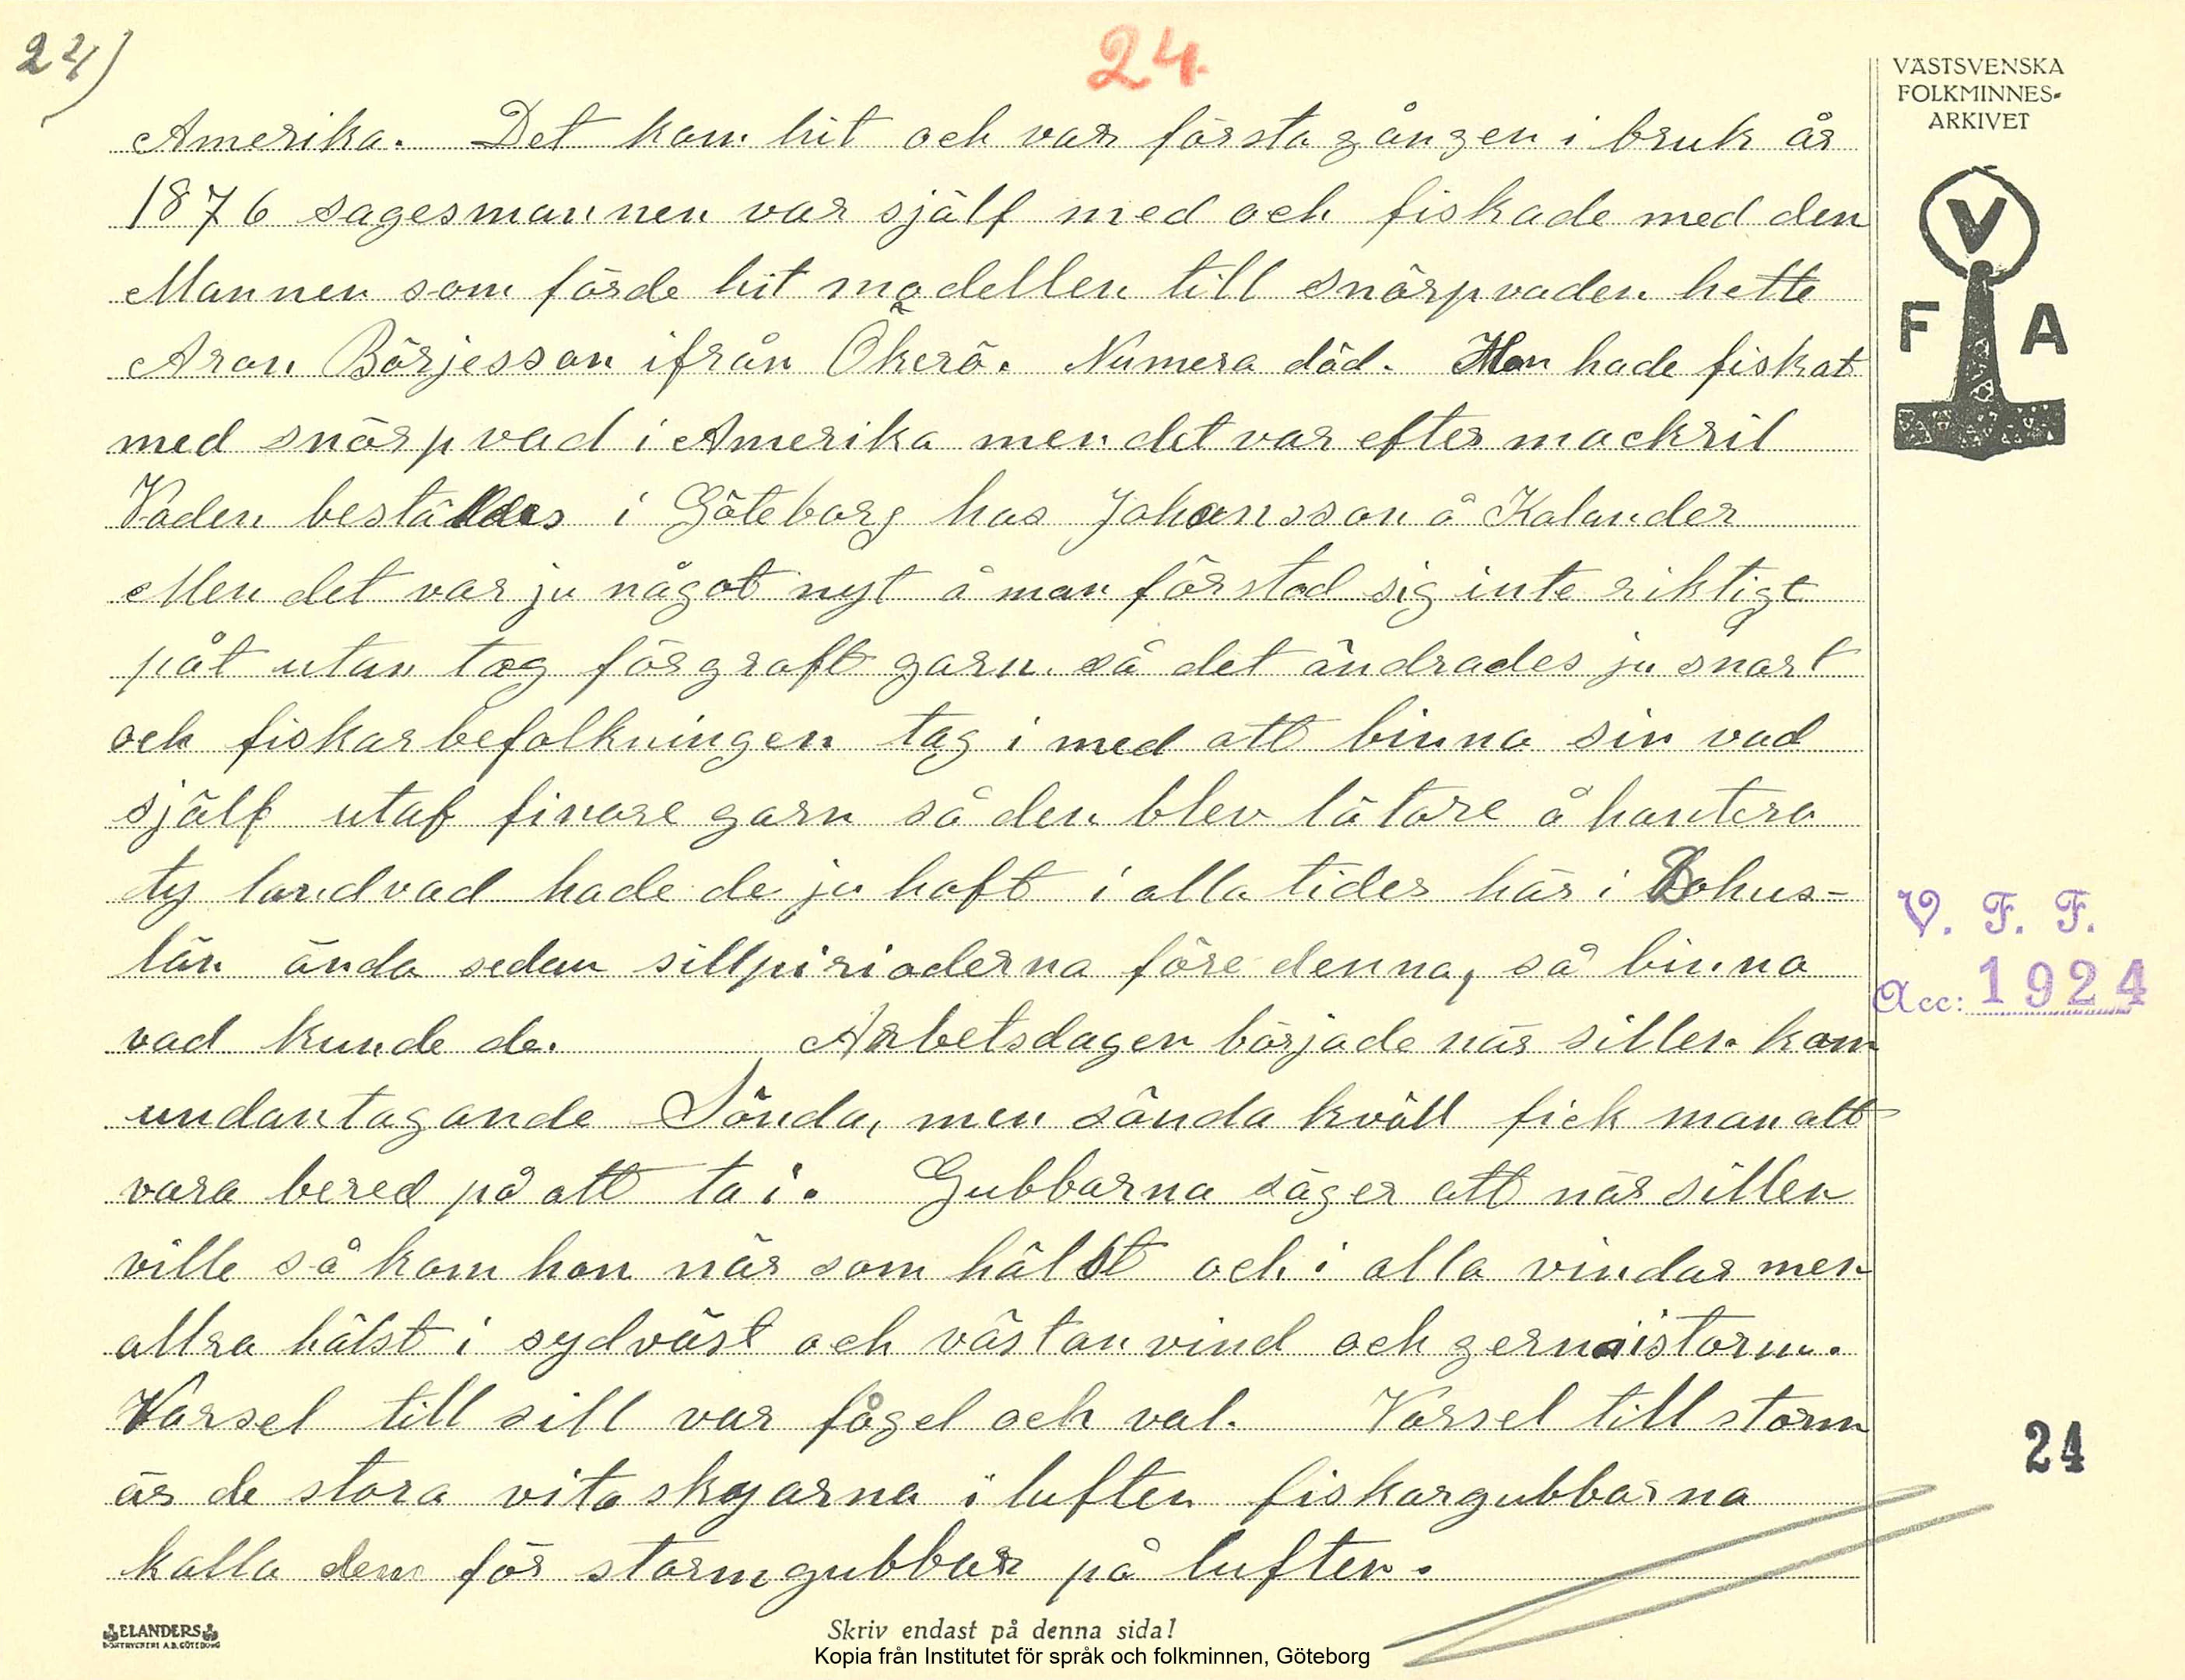 24)
24.
VÄSTSVENSKA
FOLKMINNES-
ARKIVET
V
F A
Amerika. Det kom hit och var första gången i bruk år
1876 sagesmannen var själf med och fiskade med den
Mannen som förde hit modellen till snörpvaden hette
Aron Börjesson ifrån Öckerö. Numera död. Han hade fiskat
med snörpvad i Amerika men det var efter mackril
Vaden beställdes i Göteborg hos Johansson å Kalander
Men det var ju något nyt å man förstod sig inte riktigt
påt utan tog förgroft garn så det ändrades ju snart
och fiskarbefolkningen tog i med att binna sin vad
själf utaf finare garn så den blev lätare å hantera
ty landvad hade de ju haft i alla tider här i Bohus-
län ända sedan sillpirioderna före denna, så binna
vad kunde de. Arbetsdagen började när sillen kom
undantagande Sönda, men sönda kväll fick man att
vara bered på att ta i. Gubbarna säger att när sillen
ville så kom hon när som hälst och i alla vindar men
allra hälst i sydväst och västanvind och gerna i storm.
Varsel till sill var fågel och val. Varsel till storm
är de stora vita skyarna i luften fiskargubbarna
kalla dem för stormgubbar på luften.
V. F. F.
Acc: 1924
24
ELANDERS
BOKTRYCKERI A.B. GÖTEBORG
Skriv endast på denna sida!
Kopia från Institutet för språk och folkminnen, Göteborg